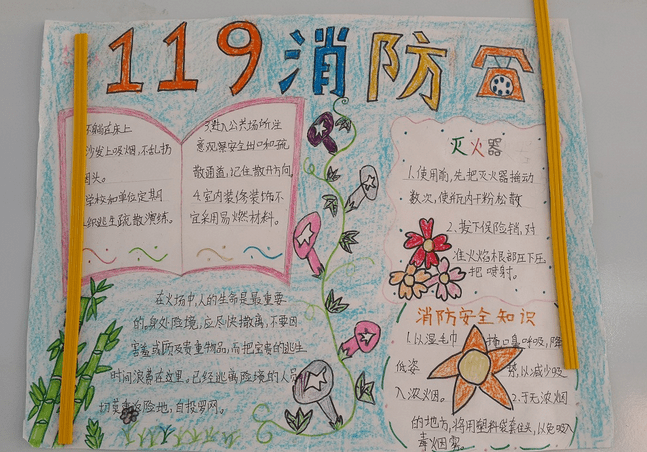 119消防
不躺在床上
沙发上吸烟,不乱扔
烟头。
学校和单位定期
组织逃生疏散演练。
3.进入公共场所注
意观察安全出口和疏
散通道,记住散开方向
4.室内装修装饰不
宜采用易燃材料。
灭火器
1.使用前,先把灭火器摇动
数次,使瓶内干粉松散
2.拨下保险销,对
准火焰根部压下压
把喷射。
在火场中,人的生命是最重要
的,身处险境,应尽快撤离,不要因
害羞或顾及贵重物品,而把宝贵的逃生
时间浪费在这里。已经逃离险境的人员
切莫重返险地,自投罗网。
消防安全知识
1.以湿毛巾掩口鼻呼吸,降
低姿势,以减少吸
入浓烟。
2.于无浓烟
的地方,将用塑料袋套住头,以免吸入
毒烟雾。